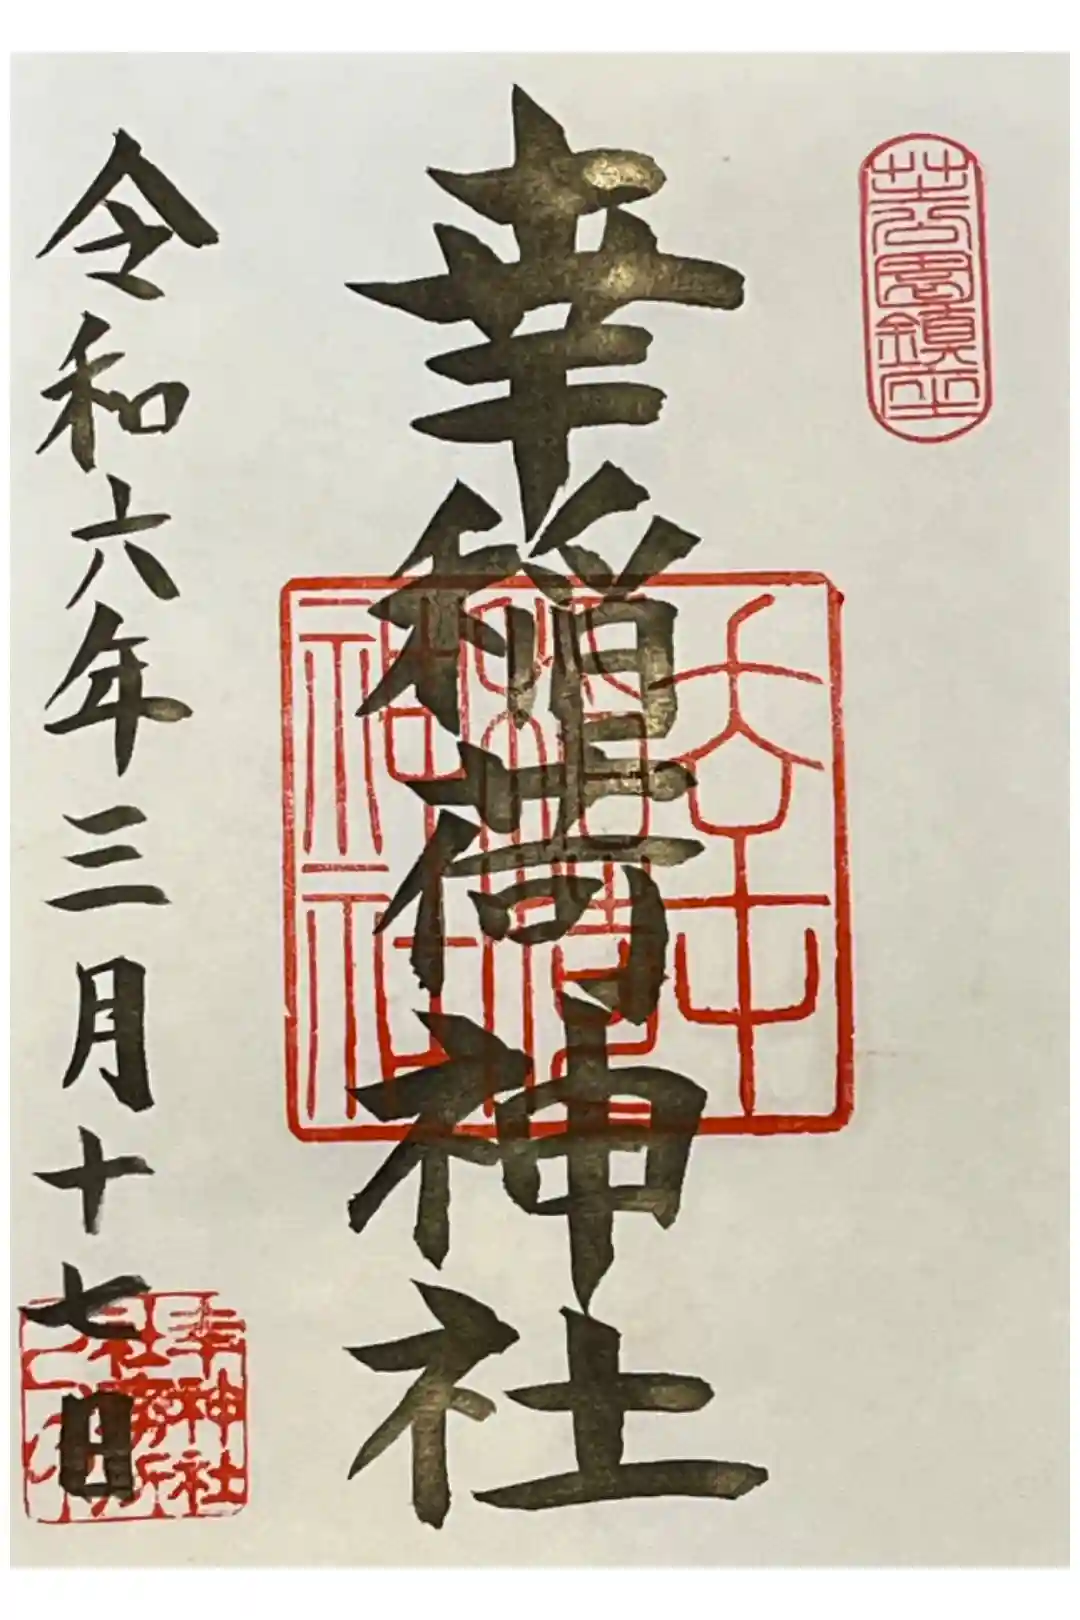 芝公園鎮座
幸稲荷神社
幸
稲荷
神社
令和六年三月十七日
幸神社
社務所
之印